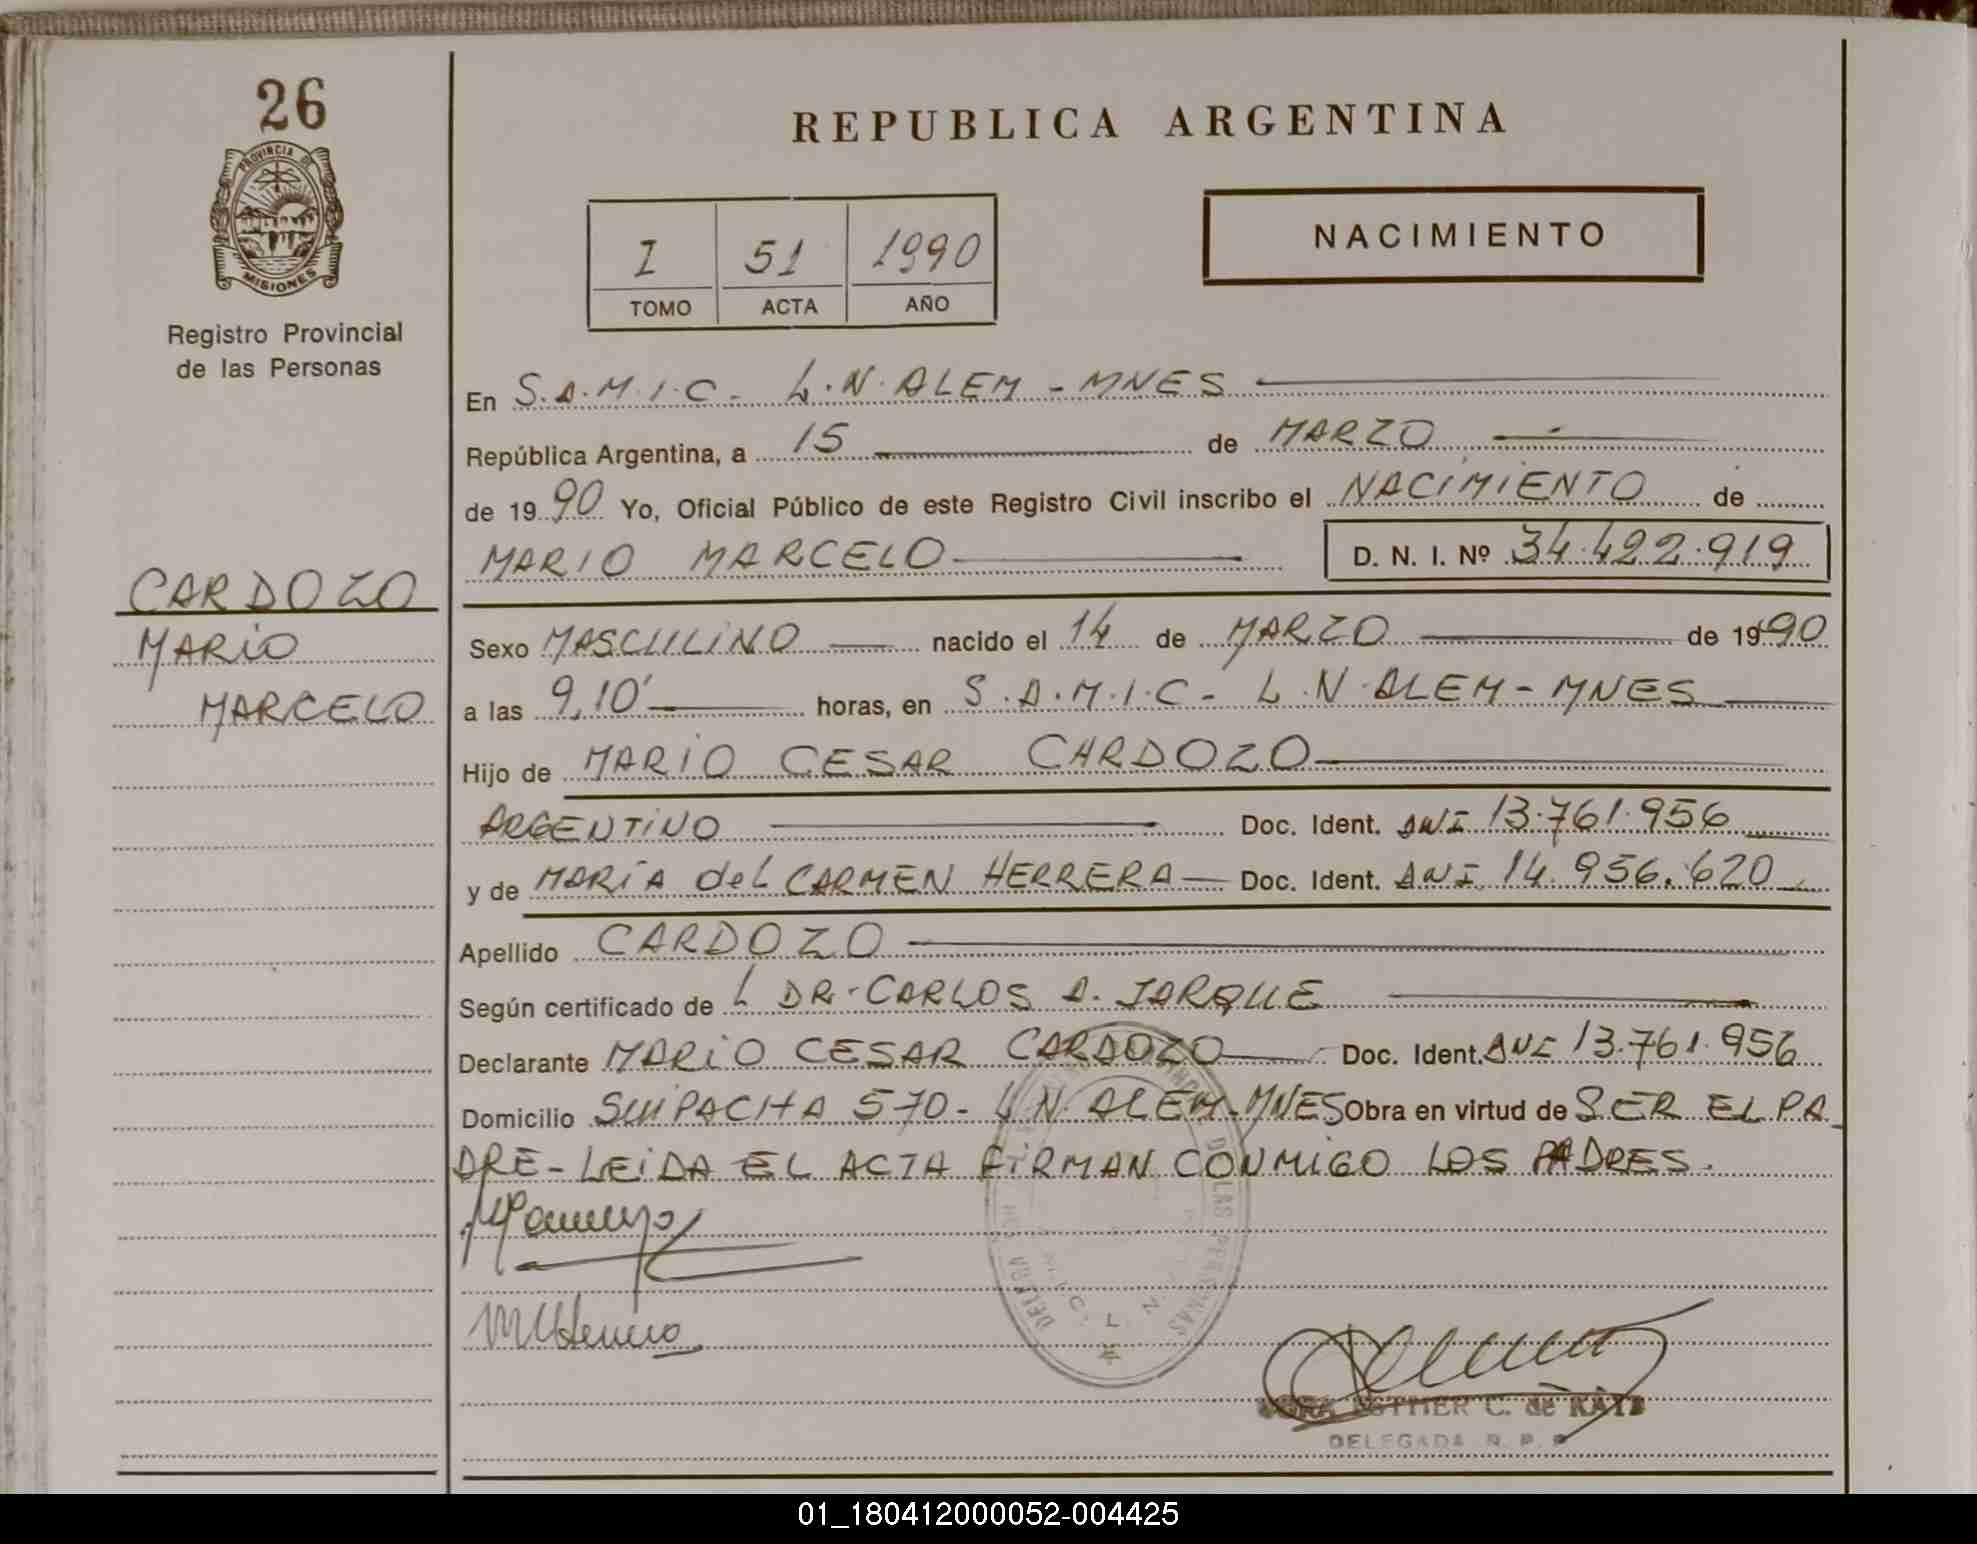 26
PROVINCIA DE
MISIONES
Registro Provincial
de las Personas
CARDOZO
MARIO
MARCELO
REPUBLICA ARGENTINA
I 51 1990
TOMO ACTA AÑO
NACIMIENTO
En S.A.M.I.C - L.N.ALEM - MNES
República Argentina, a 15 de MARZO
de 1990 Yo, Oficial Público de este Registro Civil inscribo el NACIMIENTO de
MARIO MARCELO D. N. I. Nº 34.422.919
Sexo MASCULINO nacido el 14 de MARZO de 1990
a las 9,10' horas, en S.A.M.I.C - L.N.ALEM - MNES
Hijo de MARIO CESAR CARDOZO
ARGENTINO Doc. Ident. DNI 13.761.956
y de MARIA del CARMEN HERRERA Doc. Ident. DNI 14.956.620
Apellido CARDOZO
Según certificado de L DR. CARLOS A. JARQUE
Declarante MARIO CESAR CARDOZO Doc. Ident. DNI 13.761.956
Domicilio SUIPACHA 570 - L N. ALEM - MNES Obra en virtud de SER EL PA
DRE - LEIDA EL ACTA FIRMAN CONMIGO LOS PADRES.
DE LAS PERSONAS
ESTHER C. de KATZ
DELEGADA R. P. P
01_180412000052-004425